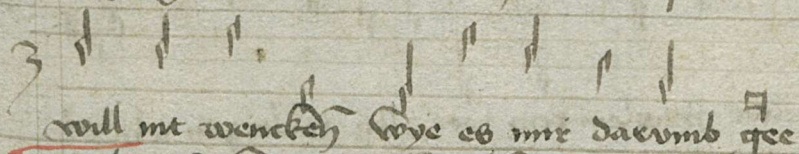 will nit wencken Wye es mir darvmb gee